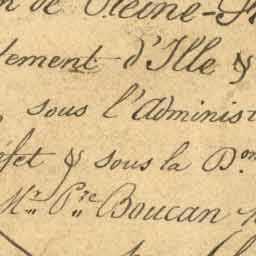 de Pleine-F
tement d'Ille &
, sous l'Adminis
éfet & sous la Don
Mr. Pre. Boucan